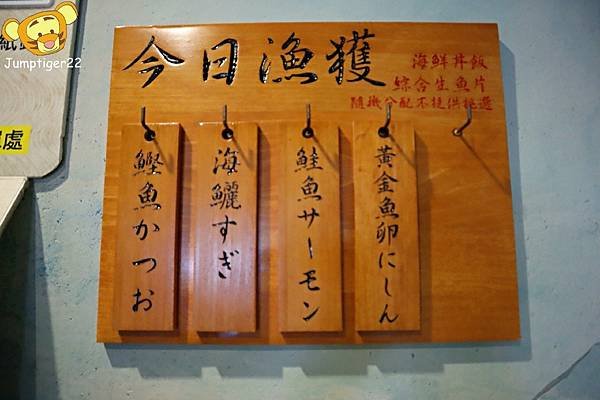 Jumptiger22
今日漁獲
海鮮丼飯
綜合生魚片
隨機分配不提供挑選
鰹魚かつお
海鱺すぎ
鮭魚サーモン
黃金魚卵にしん
處